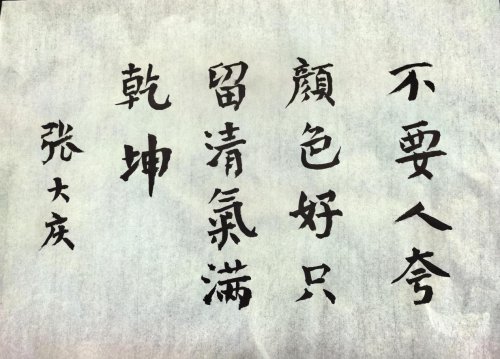 不要人夸
顏色好只
留清氣满
乾坤
张大庆